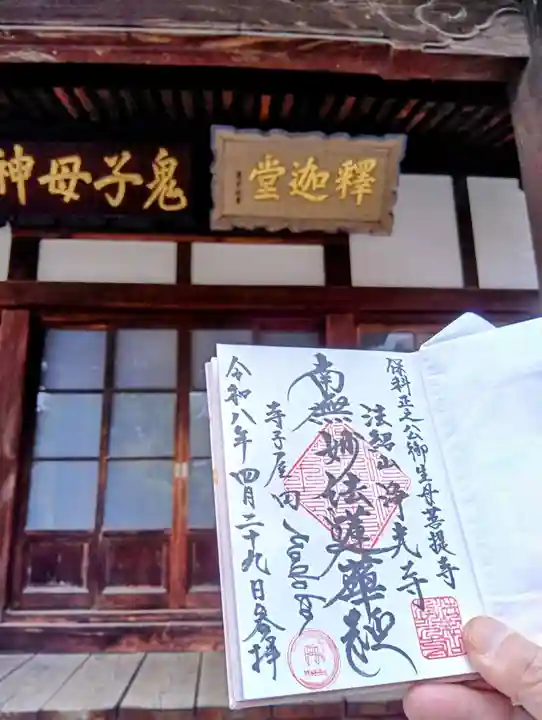 釋迦堂
鬼子母神
保科正之公御生母菩提寺
法紹山 浄光寺
南無妙法蓮華経
寺子屋
令和八年四月二十九日参拝